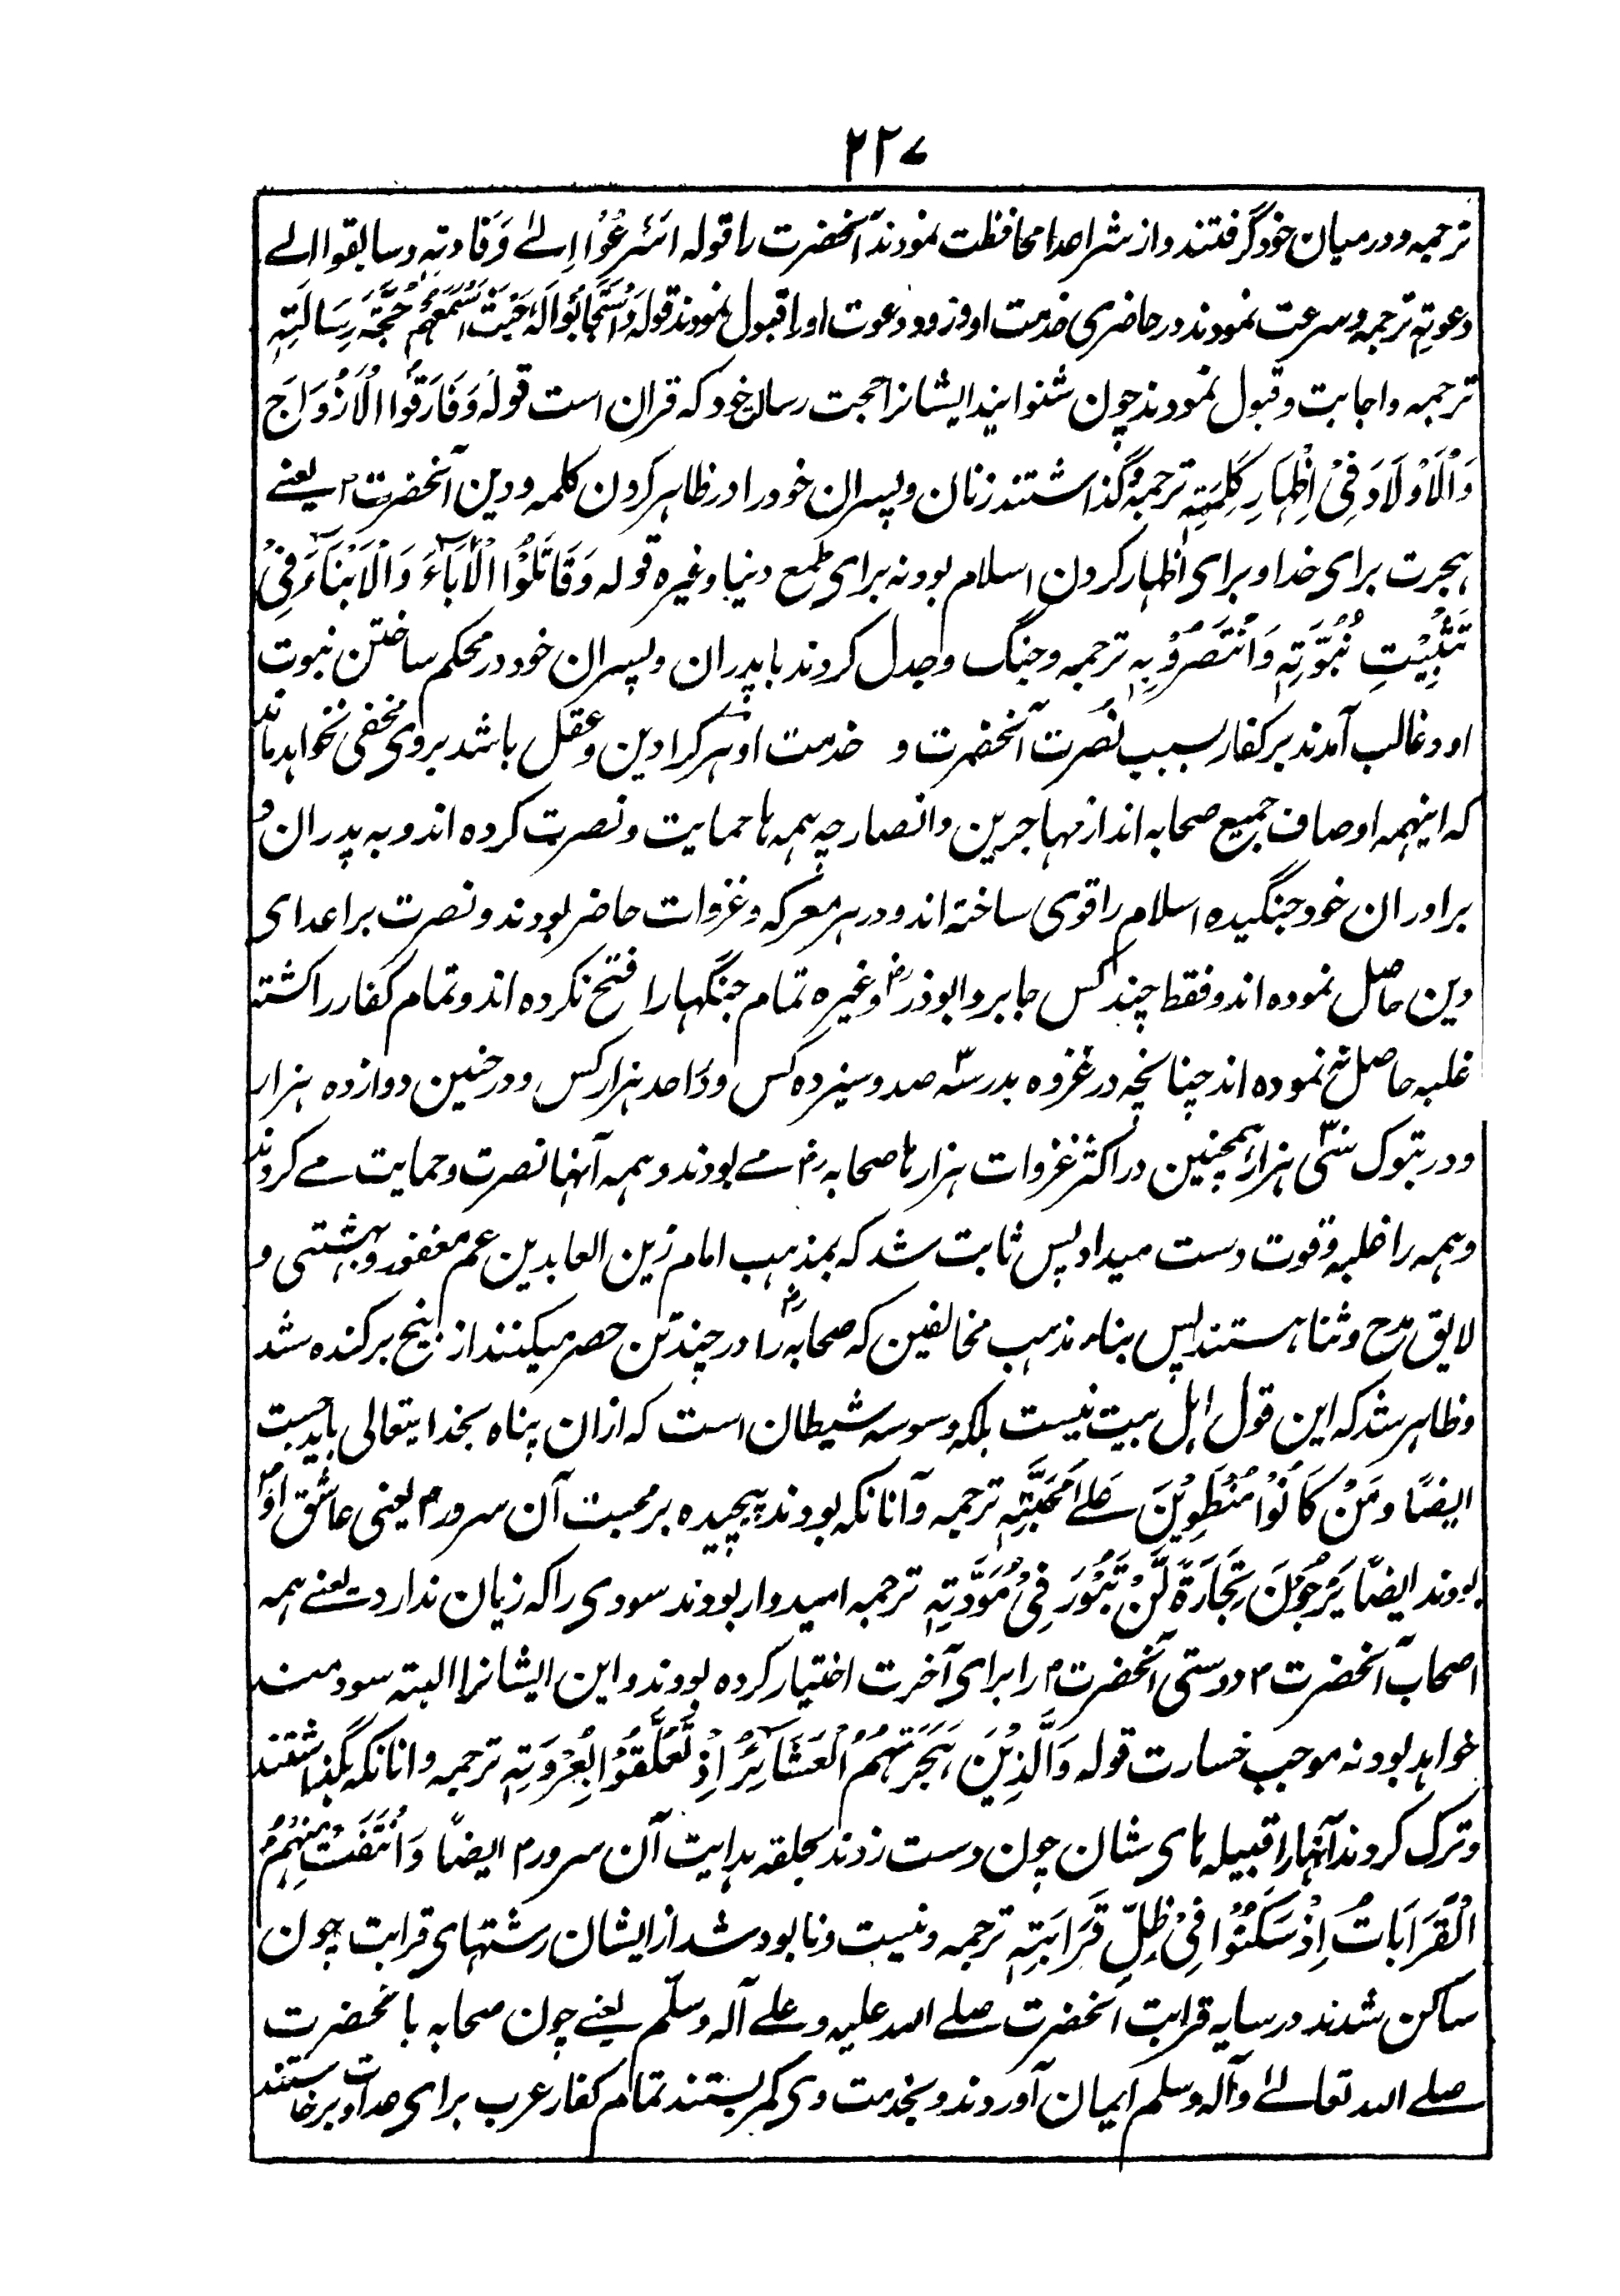 ۲۲۷
ترجمه و درمیان خود گرفتند و از شر اعدا محافظت نمودند آنحضرت را قوله اَسْرَعُوْا اِلےٰ وَفَادتِهٖ و سابقوا الے
دعوتِهٖ ترجمه و سرعت نمودند در حاضری خدمت او و زود دعوت او را قبول نمودند قوله وَاسْتَجَابُوْا لَهٗ حَيْثُ اَسْمَعَهُمْ حُجَّةَ رِسَالَتِهٖ
ترجمه و اجابت و قبول نمودند چون شنوانید ایشانرا حجت رسالت خود که قران است قوله وَفَارَقُوا الْاَزْوَاجَ
وَالْاَوْلَادَ فِیْ اِظْهَارِ كَلِمَتِهٖ ترجمه و گذاشتند زنان و پسران خود را در ظاهر کردن کلمه و دین آنحضرت ؐ یعنے
ہجرت برای خدا و برای اظهار کردن اسلام بود نه برای طمع دنیا و غیره قوله وَقَاتَلُوْا الْاٰبَآءَ وَالْاَبْنَآءَ فِیْ
تَثْبِيْتِ نُبُوَّتِهٖ وَانْتَصَرُوْ بِهٖ ترجمه و جنگ و جدل کردند با پدران و پسران خود در محکم ساختن نبوت
او و غالب آمدند بر کفار بسبب نصرت آنحضرت و خدمت او ہر کرا دین و عقل باشد بروی مخفی نخواہد ماند
که اینہمه اوصاف جمیع صحابه اند از مہاجرین و انصار چه ہمه ہا حمایت و نصرت کرده اند و به پدران و
برادران خود جنگیده اسلام را قوی ساخته اند و در ہر معرکه و غزوات حاضر بودند و نصرت بر اعدای
دین حاصل نموده اند و فقط چند کس جابر و ابوذر ؓ و غیره تمام جنگہا را فتح نکرده اند و تمام کفار را کشته
غلبه حاصل نه نموده اند چنانچه در غزوه بدر سه صد و سیزده کس و در احد ہزار کس و در حنین دوازده ہزار
و در تبوک سی ہزار ہمچنین در اکثر غزوات ہزار ہا صحابه ؓ مے بودند و ہمه آنہا نصرت و حمایت مے کردند
و ہمه را غلبه و قوت دست میداد پس ثابت شد که بمذہب امام زین العابدین ؑ ہم مغفور و بہشتی و
لایق مدح و ثنا ہستند پس بناء مذہب مخالفین که صحابه ؓ را در چند تن حصر میکنند از بیخ برکنده شد
و ظاہر شد که این قول اہل بیت نیست بلکه وسوسه شیطان است که ازان پناه بخدایتعالی باید جست
ایضًا وَمَنْ كَانُوْا مُنْطَوِيْنَ عَلےٰ مَحَبَّتِهٖ ترجمه و آنانکه بودند پیچیده بر محبت آن سرور ؐ یعنی عاشق او ؐ
بودند ایضًا يَرْجُوْنَ تِجَارَةً لَّنْ تَبُوْرَ فِیْ مُوَدَّتِهٖ ترجمه امیدوار بودند سودی را که زیان ندارد یعنے ہمه
اصحاب آنحضرت ؐ دوستی آنحضرت ؐ را برای آخرت اختیار کرده بودند و این ایشانرا البته سودمند
خواہد بود نه موجب خسارت قوله وَالَّذِيْنَ ہَجَرَتْہُمُ الْعَشَآئِرُ اِذْ تَعَلَّقُوْا بِعُرْوَتِهٖ ترجمه و انانکه بگذاشتند
و ترک کردند آنہا را قبیله ہای شان چون دست زدند بحلقه ہدایت آن سرور ؐ ایضًا وَانْتَفَتْ مِنْہُمُ
الْقَرَابَاتُ اِذْ سَكَنُوْا فِیْ ظِلِّ قَرَابَتِهٖ ترجمه و نیست و نابود شد از ایشان رشتہای قرابت چون
ساکن شدند در سایه قرابت آنحضرت صلے الله علیه و علے آله وسلّم یعنے چون صحابه بآنحضرت
صلے الله تعالےٰ و آله وسلم ایمان آوردند و بخدمت وی کمر بستند تمام کفار عرب برای عداوت برخاستند